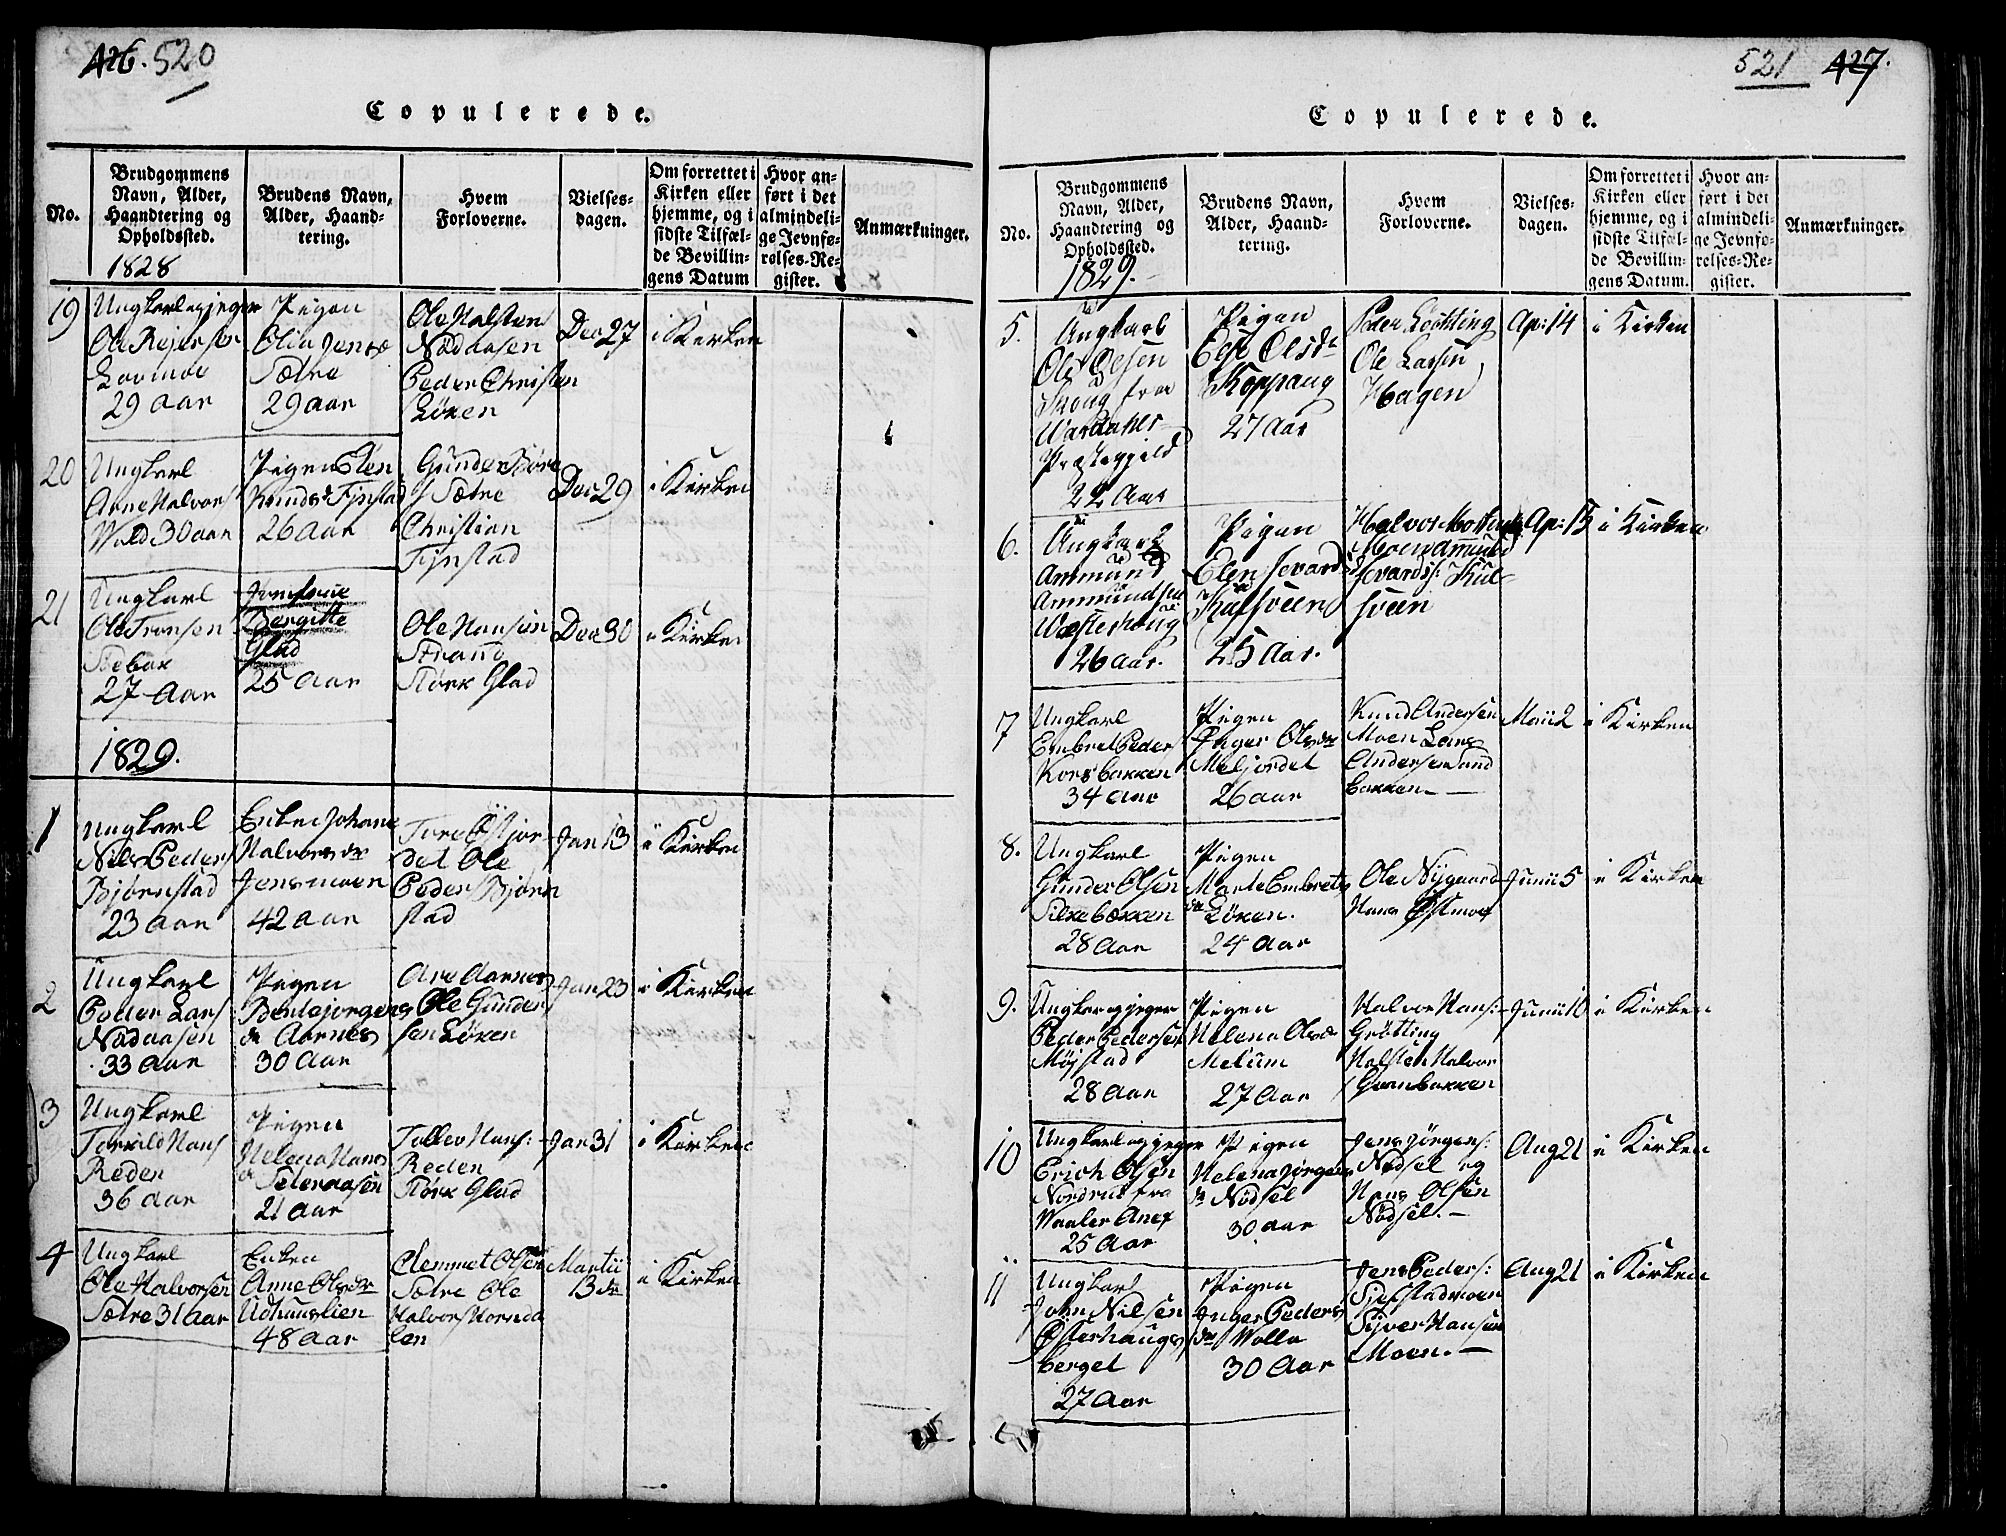 426. 520
Copulerede.
No.
Brudgommens
Navn, Alder,
Haandtering og
Opholdssted.
1828
Brudens Navn,
Alder, Haand-
tering.
Hvem
Forloverne.
Vielses-
dagen.
Om forrettet i
Kirken eller
hjemme, og i
sidste Tilfæl-
de Bevillin-
gens Datum
Hvor an-
ført i det
almindeli-
ge Jevnfø-
relses-Re-
gister.
Anmærkninger.
19
Ungkarl og jeger
Ole Rejersen
29 aar
Pigen
Olia Jens
Sætre
29 aar
Ole Halsten
Nödaasen
Peder Christen
Löken
Dec 27
i Kirken
20
Ungkarl
Arne Halvors
Wold 30 aar
Pigen Elen
Knuds Fjnstad
26 Aar
Gunder Böre
Sætre
Christian
Fjnstad
Dec 29
i Kirken
21
Ungkarl
Ole Tronsen
Stebak
27 Aar
Jomfrue
Bergitte
Glad
25 Aar
Ole Hansen
Strand
Störk Glad
Dec 30
i Kirken
1829.
1
Ungkarl
Nils Peders
Bjørnstad
23 Aar
Enken Johane
Halvors dr
Jensmoen
42 aar
Tore Østjor
det Ole
Peders Bjørn
stad
Jan 13
i Kirken
2
Ungkarl
Peder Lars
Nödaasen
33 Aar
Pigen
Bentejørgens
dr Aarnes
30 Aar
Are Aarnes
Ole Gunder
sen Löken
Jan 23
i Kirken
3
Ungkarl
Torkild Hans
Reden
36 Aar
Pigen
Helena Hans
21 Aar
Tollev Hans:
Reden
Störk Glad
Jan 31
i Kirken
4
Ungkarl
Ole Halvorsen
Sætre 31 Aar
Enken
Anne Olsdr
Udhuuslien
48 Aar
Clemmet Olsen
Sætre Ole
Halvors Hornda
len
Martii
13 de
i Kirken
521 427.
Copulerede.
No.
Brudgommens
Navn, Alder,
Haandtering og
Opholdssted.
1829.
Brudens Navn,
Alder, Haand-
tering.
Hvem
Forloverne.
Vielses-
dagen.
Om forrettet i
Kirken eller
hjemme, og i
sidste Tilfæl-
de Bevillin-
gens Datum.
Hvor an-
ført i det
almindeli-
ge Jevnfø-
relses-Re-
gister.
Anmærkninger.
5.
Ungkarl
Ole Olsen
Skoug fra
Præstegjeld
22 Aar
Pigen
Else Olsdr
Koppang
27 Aar
Peder Löchting
Ole Larsen
Hagen
Ap: 14
i Kirken
6.
Ungkarl
Ammund
Ammundsen
Westerhaug
26 Aar.
Pigen
Elen Sevards
Kulsveen
25 Aar.
Halvor
Moen Ammund
Sevards: Kul-
sveen
Ap: 15
i Kirken
7
Ungkarl
Embret Peder
Korsbakken
34 Aar
Pigen
Inger Olsdr
Meljordet
26 aar
Knud Andersen
Moen Lars
Andersen Sand
bakken.
Maii 2
i Kirken
8.
Ungkarl
Gunder Olsen
Silkebækken
28 Aar
Pigen
Marte Embrets
dr Löken.
24 Aar
Ole Nygaard
Hans Østmoe
Junii 5
i Kirken
9.
Ungkarl og jeger
Peder Pedersen
Möjstad
28 Aar
Pigen
Helena Olsdr
Melum
27 Aar
Halvor Hans:
Grötting
Halsten Halvor
Granbakken
Junii 10
i Kirken
10
Ungkarl og jeger
Erich Olsen
Nordrud fra
Waaler Anex
25 Aar
Pigen
Helena Jörgens
dr Nödsel
30 aar
Jens Jörgens:
Nödsel og
Hans Olsen
Nödsel.
Aug 21
i Kirken
11
Ungkarl
John Nilsen
Østerhaugs
berget
27 Aar
Pigen
Inger Peders
dr Wolla
30 Aar
Jens Peders:
Sjelstadmoen
Sjver Hansen
Moen.
Aug 21
i Kirken